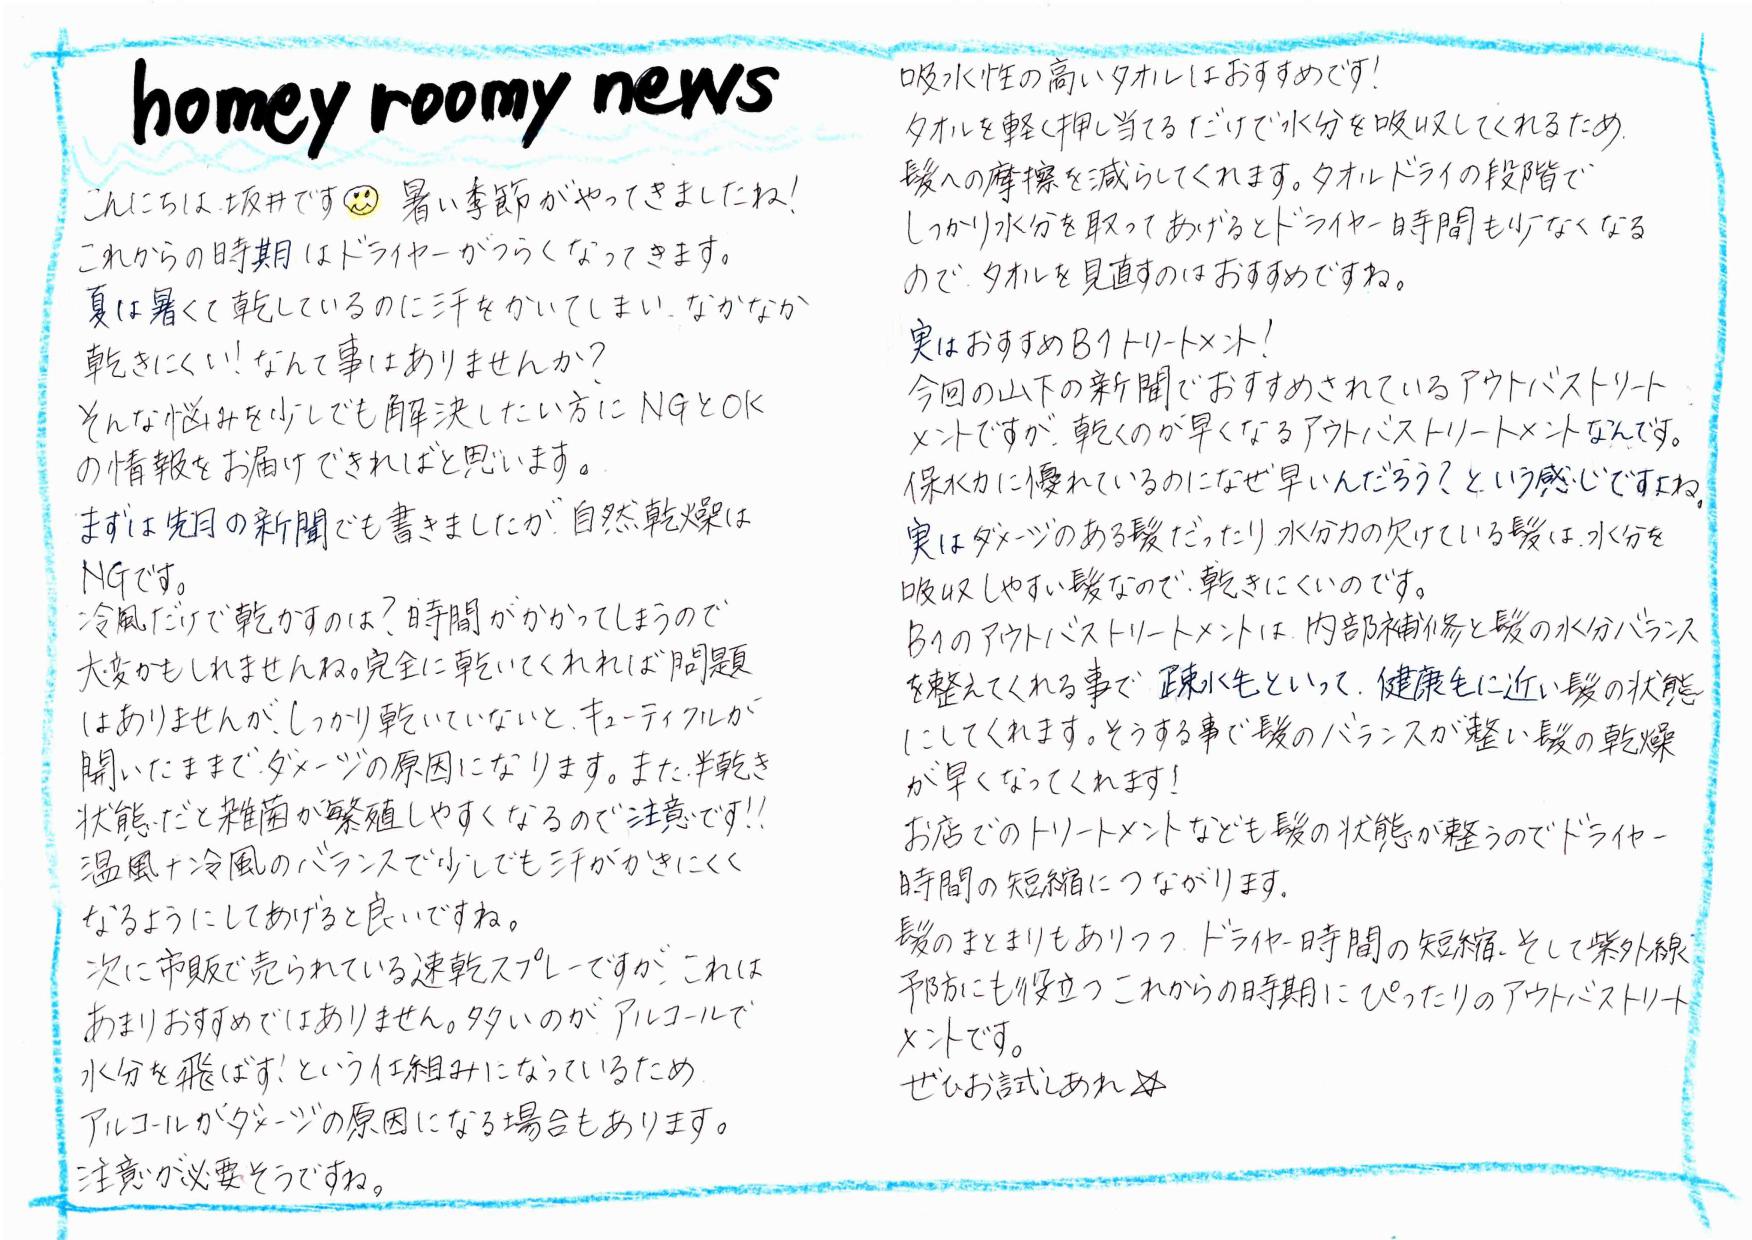 homey roomy news
こんにちは、坂井です 暑い季節がやってきましたね!
これからの時期はドライヤーがつらくなってきます。
夏は暑くて乾しているのに汗をかいてしまい、なかなか
乾きにくい!なんて事はありませんか?
そんな悩みを少しでも解決したい方にNGとOK
の情報をお届けできればと思います。
まずは先月の新聞でも書きましたが、自然乾燥は
NGです。
冷風だけで乾かすのは?時間がかかってしまうので
大変かもしれませんね。完全に乾いてくれれば問題
はありませんが、しっかり乾いていないと、キューティクルが
開いたままで、ダメージの原因になります。また、半乾き
状態だと雑菌が繁殖しやすくなるので注意です!!
温風+冷風のバランスで少しでも汗がかきにくく
なるようにしてあげると良いですね。
次に市販で売られている速乾スプレーですが、これは
あまりおすすめではありません。多いのが、アルコールで
水分を飛ばす!という仕組みになっているため、
アルコールがダメージの原因になる場合もあります。
注意が必要そうですね。
吸水性の高いタオルはおすすめです!
タオルを軽く押し当てるだけで水分を吸収してくれるため、
髪への摩擦を減らしてくれます。タオルドライの段階で
しっかり水分を取ってあげるとドライヤー時間も少なくなる
ので、タオルを見直すのはおすすめですね。
実はおすすめB1トリートメント!
今回の山下の新聞でおすすめされているアウトバストリート
メントですが、乾くのが早くなるアウトバストリートメントなんです。
保水力に優れているのになぜ早いんだろう?という感じですよね。
実はダメージのある髪だったり、水分力の欠けている髪は、水分を
吸収しやすい髪なので、乾きにくいのです。
B1のアウトバストリートメントは、内部補修と髪の水分バランス
を整えてくれる事で、疎水毛といって、健康毛に近い髪の状態
にしてくれます。そうする事で髪のバランスが整い髪の乾燥
が早くなってくれます!
お店でのトリートメントなども髪の状態が整うのでドライヤー
時間の短縮につながります。
髪のまとまりもありつつ、ドライヤー時間の短縮、そして紫外線
予防にも役立つこれからの時期にぴったりのアウトバストリート
メントです。
ぜひお試しあれ☆